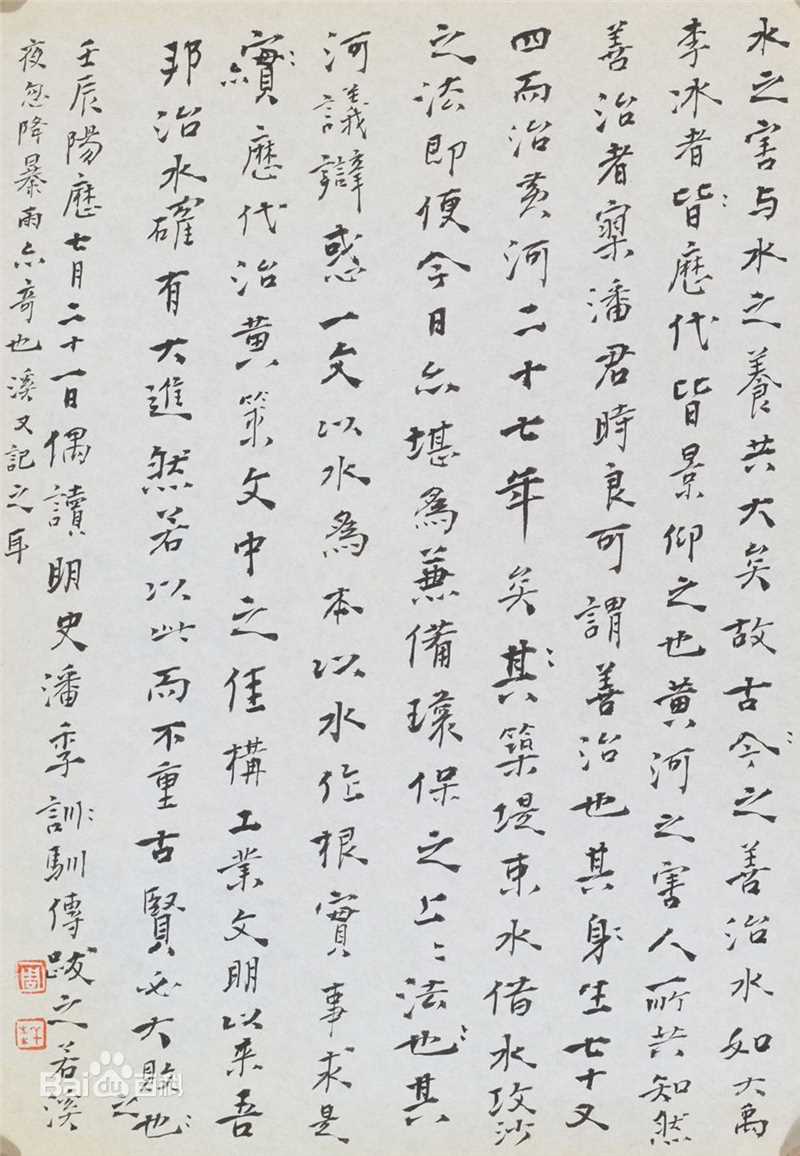 水之害与水之養共大矣故古今之善治水如大禹
李冰者皆歷代皆景仰之也黄河之害人所共知然
善治者寥潘君時良可謂善治也其身生七十又
四而治黄河二十七年矣其築堤束水借水攻沙
之法即便今日亦堪為兼備環保之上上法也其
河議辯惑一文以水為本以水作根實事求是
實亦歷代治黄策文中之佳構工業文明以来吾
邦治水確有大進然若以此而不重古賢必大敗之也
壬辰陽歷七月二十一日偶讀明史潘季訓馴傳跋之若溪
夜忽降暴雨亦奇也溪又記之耳
Baidu百科